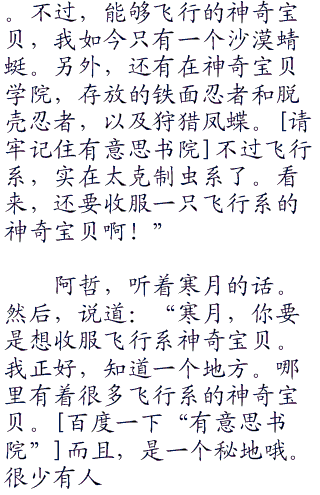 。不过，能够飞行的神奇宝
贝，我如今只有一个沙漠蜻
蜓。另外，还有在神奇宝贝
学院，存放的铁面忍者和脱
壳忍者，以及狩猎凤蝶。[请
牢记住有意思书院]不过飞行
系，实在太克制虫系了。看
来，还要收服一只飞行系的
神奇宝贝啊！”
阿哲，听着寒月的话。
然后，说道：“寒月，你要
是想收服飞行系神奇宝贝。
我正好，知道一个地方。哪
里有着很多飞行系的神奇宝
贝。[百度一下“有意思书
院”]而且，是一个秘地哦。
很少有人